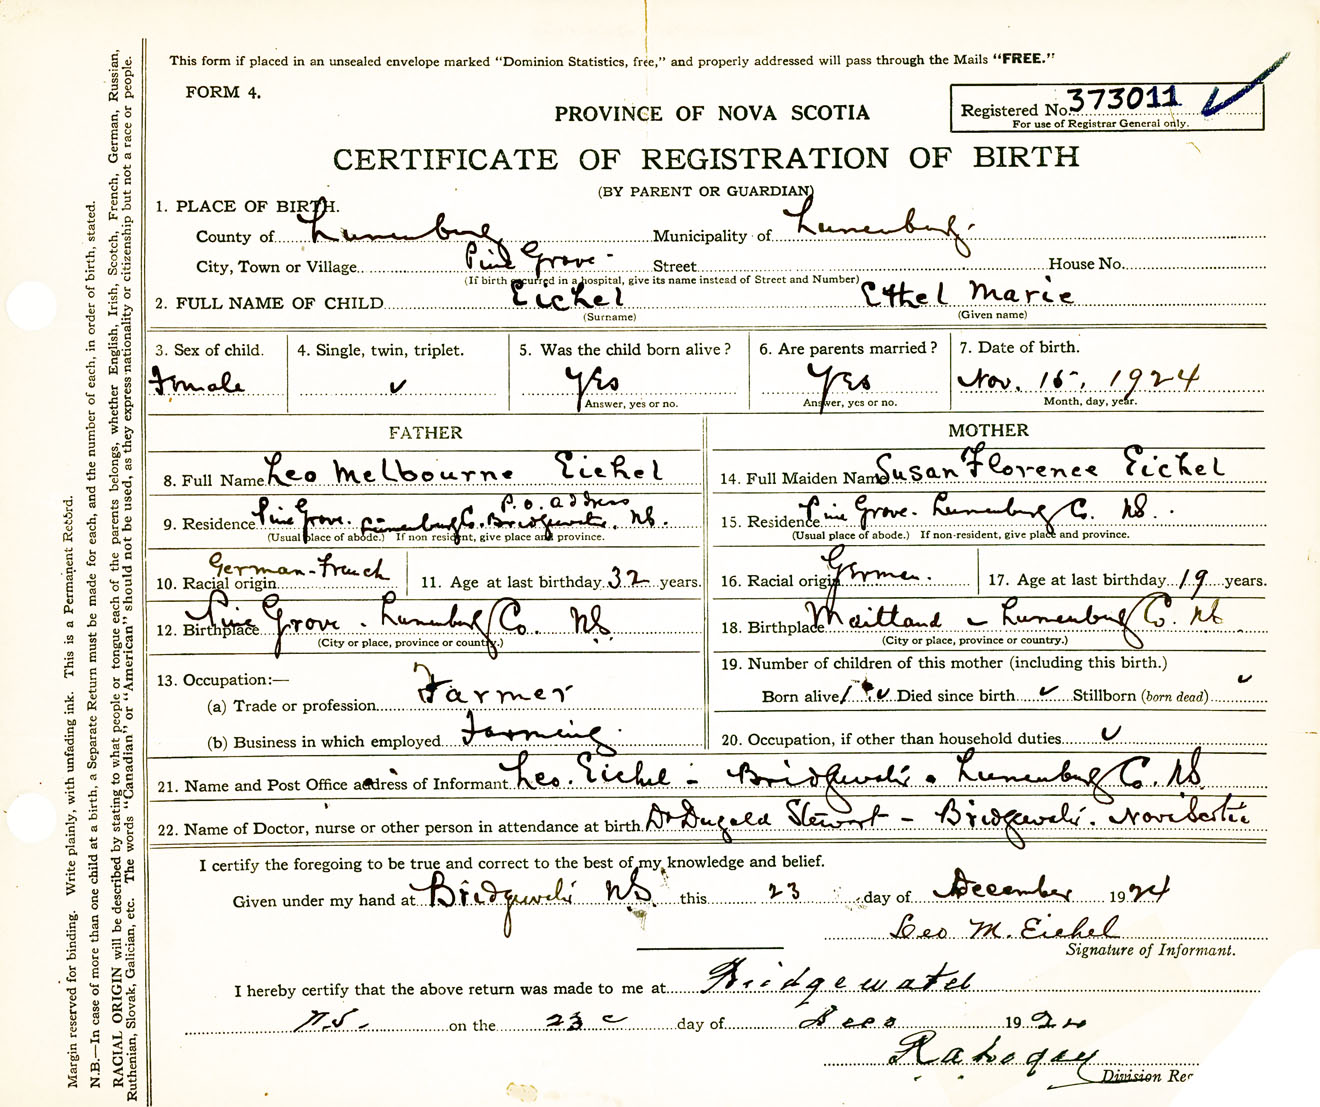 This form if placed in an unsealed envelope marked "Dominion Statistics, free," and properly addressed will pass through the Mails "FREE."
FORM 4.
PROVINCE OF NOVA SCOTIA
Registered No. 373011 ✓
For use of Registrar General only.
CERTIFICATE OF REGISTRATION OF BIRTH
(BY PARENT OR GUARDIAN)
1. PLACE OF BIRTH.
County of Lunenburg Municipality of Lunenburg.
City, Town or Village Pine Grove - Street House No.
(If birth occurred in a hospital, give its name instead of Street and Number)
2. FULL NAME OF CHILD Eichel Ethel Marie
(Surname) (Given name)
3. Sex of child. 4. Single, twin, triplet. 5. Was the child born alive? 6. Are parents married? 7. Date of birth.
Female ✓ Yes Yes Nov. 15, 1924
Answer, yes or no. Answer, yes or no. Month, day, year.
FATHER
8. Full Name Leo Melbourne Eichel
P.O. address
9. Residence Pine Grove. Lunenburg Co. Bridgewater, NS.
(Usual place of abode.) If non resident, give place and province.
10. Racial origin German-French 11. Age at last birthday 32 years.
12. Birthplace Pine Grove. Lunenburg Co. NS.
(City or place, province or country.)
13. Occupation:—
(a) Trade or profession Farmer
(b) Business in which employed Farming.
MOTHER
14. Full Maiden Name Susan Florence Eichel
15. Residence Pine Grove. Lunenburg Co. NS.
(Usual place of abode.) If non-resident, give place and province.
16. Racial origin German. 17. Age at last birthday 19 years.
18. Birthplace Maitland - Lunenburg Co. NS
(City or place, province or country.)
19. Number of children of this mother (including this birth.)
Born alive 1 ✓ Died since birth ✓ Stillborn (born dead) ✓
20. Occupation, if other than household duties ✓
21. Name and Post Office address of Informant Leo. Eichel - Bridgewater. Lunenburg Co. NS
22. Name of Doctor, nurse or other person in attendance at birth. Dr Dugald Stewart - Bridgewater. Nova Scotia
I certify the foregoing to be true and correct to the best of my knowledge and belief.
Given under my hand at Bridgewater NS. this 23 day of December 1924
Leo M. Eichel
Signature of Informant.
I hereby certify that the above return was made to me at Bridgewater
N.S. on the 23 day of Dec 1924
Division Reg
Margin reserved for binding. Write plainly, with unfading ink. This is a Permanent Record.
N.B.—In case of more than one child at a birth, a Separate Return must be made for each, and the number of each, in order of birth, stated.
RACIAL ORIGIN will be described by stating to what people or tongue each of the parents belongs, whether English, Irish, Scotch, French, German, Russian,
Ruthenian, Slovak, Galician, etc. The words "Canadian" or "American" should not be used, as they express nationality or citizenship but not a race or people.